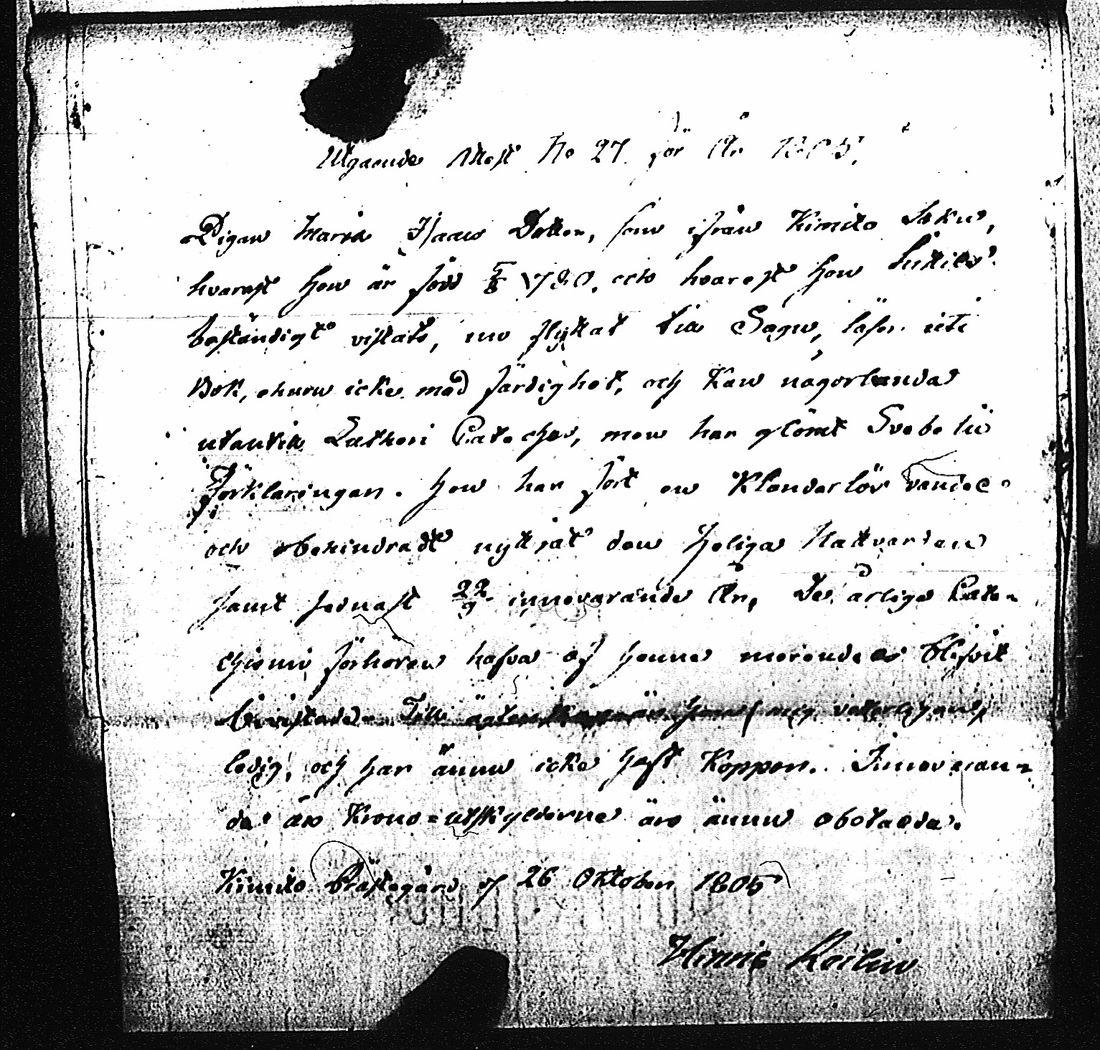 Utgående Attest No 27. för År 1805.
Pigan Maria Isaacs Dotter, som ifrån Kimito Sokn,
hvarest hon är född 1780, och hvarest hon hitils
beständigt vistats, nu flyttat till Sagu, läser uti
Bok, ehuru icke med färdighet, och kan någorlunda
utantill Lutheri Cateches, men har glömt Svebelii
Förklaringen. Hon har fört en klanderlös vandel
och obehindradt nyttjat den heliga Nattvarden
samt sednast 22/9 innevarande År. De årliga Cate-
chismi förhören hafva af henne merendels blifvit
bivistade. Till äktenskap är hon mig veterligen
ledig, och har ännu icke haft Koppor. Innevaran-
de års Krono-utskylderne äro ännu obetalda.
Kimito Prästegård d. 26 Oktober 1805